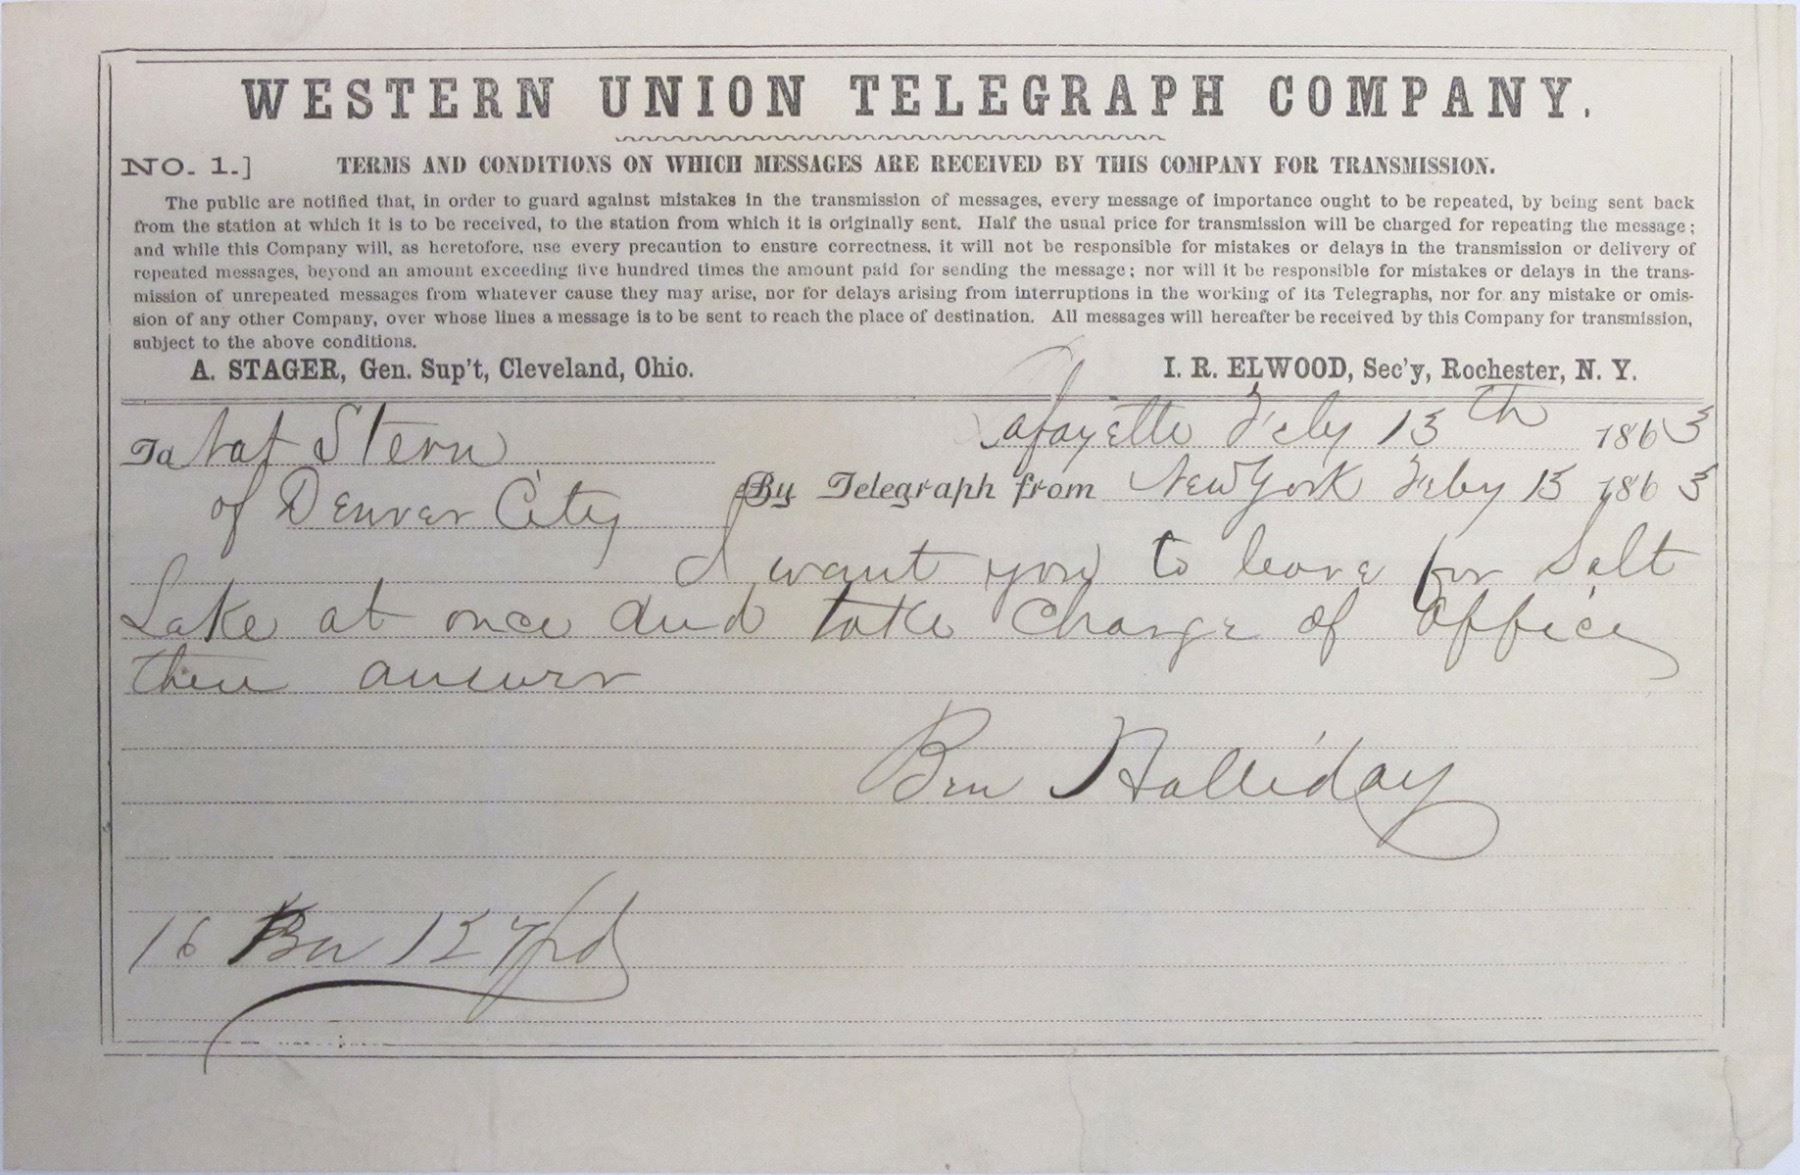 WESTERN UNION TELEGRAPH COMPANY.
NO. 1.] TERMS AND CONDITIONS ON WHICH MESSAGES ARE RECEIVED BY THIS COMPANY FOR TRANSMISSION.
The public are notified that, in order to guard against mistakes in the transmission of messages, every message of importance ought to be repeated, by being sent back
from the station at which it is to be received, to the station from which it is originally sent. Half the usual price for transmission will be charged for repeating the message;
and while this Company will, as heretofore, use every precaution to ensure correctness, it will not be responsible for mistakes or delays in the transmission or delivery of
repeated messages, beyond an amount exceeding five hundred times the amount paid for sending the message; nor will it be responsible for mistakes or delays in the trans-
mission of unrepeated messages from whatever cause they may arise, nor for delays arising from interruptions in the working of its Telegraphs, nor for any mistake or omis-
sion of any other Company, over whose lines a message is to be sent to reach the place of destination. All messages will hereafter be received by this Company for transmission,
subject to the above conditions.
A. STAGER, Gen. Sup't, Cleveland, Ohio. I. R. ELWOOD, Sec'y, Rochester, N. Y.
Lafayette Feby 13th 1863
To Nat Stern
By Telegraph from New York Feby 13 1863
of Denver City
I want you to leave for Salt
Lake at once and take charge of office
there answer
Ben Halliday
16 127 pd